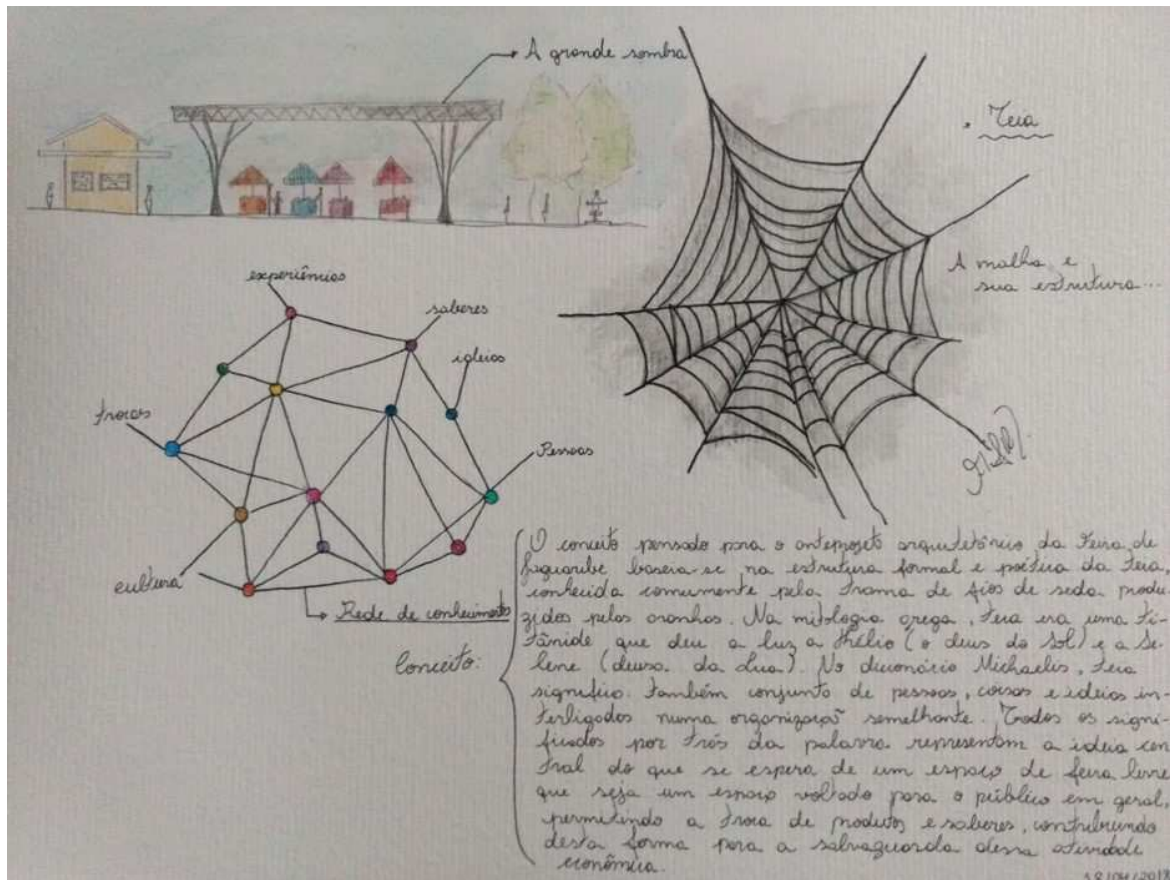 A grande sombra
Teia
A malha e
sua estrutura...
experiências
saberes
ideias
trocas
Pessoas
cultura
Rede de conhecimento
Conceito:
O conceito pensado para o anteprojeto arquitetônico da Feira de
Jaguaribe baseia-se na estrutura formal e poética da teia,
conhecida comumente pela trama de fios de seda produ-
zidos pelas aranhas. Na mitologia grega, Teia era uma ti-
tânide que deu a luz a Hélio (o deus do Sol) e a Se-
lene (deusa da Lua). No dicionário Michaelis, teia
significa também conjunto de pessoas, coisas e ideias in-
terligados numa organização semelhante. Todos os signi-
ficados por trás da palavra representam a ideia cen
tral do que se espera de um espaço de feira livre
que seja um espaço voltado para o público em geral,
permitindo a troca de produtos e saberes, contribuindo
desta forma para a salvaguarda dessa atividade
econômica.